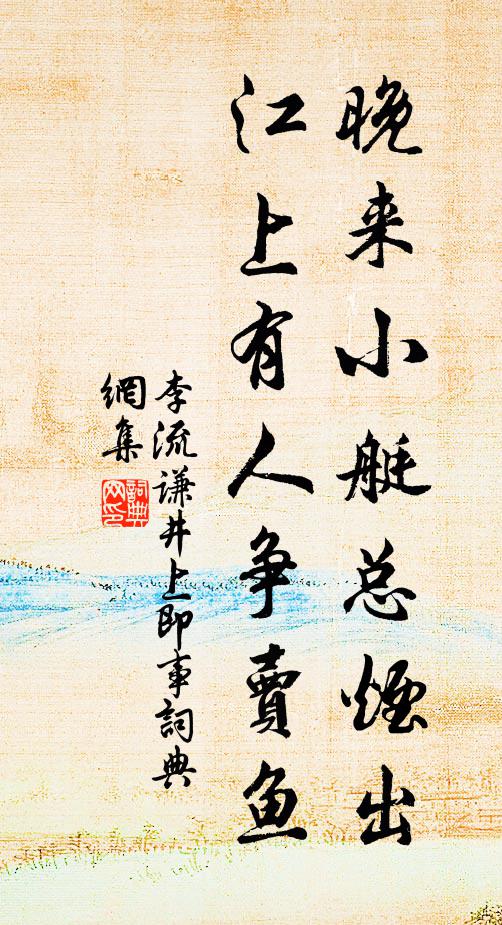 晚来小艇总煙出
江上有人争賣鱼
李流谦井上即事詞典
網集
詞典
网印